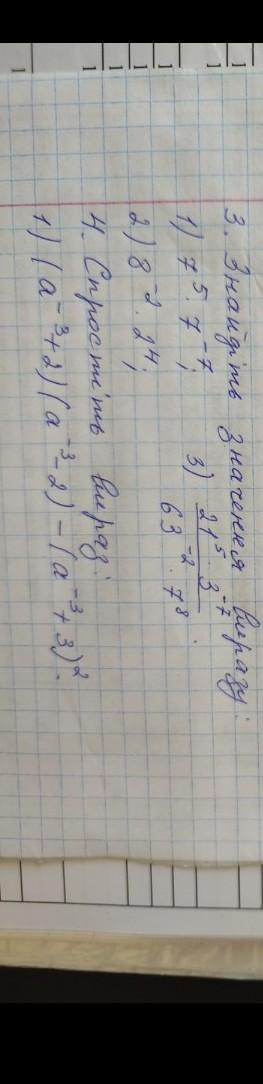 3. Знайдіть значення виразу:
1) 7⁵ · 7⁻⁷; 3) (21⁵ · 3⁻⁷)/(63⁻² · 7⁸).
2) 8⁻² · 2⁴;
4. Спростіть вираз:
1) (a⁻³+2)(a⁻³-2) - (a⁻³+3)².